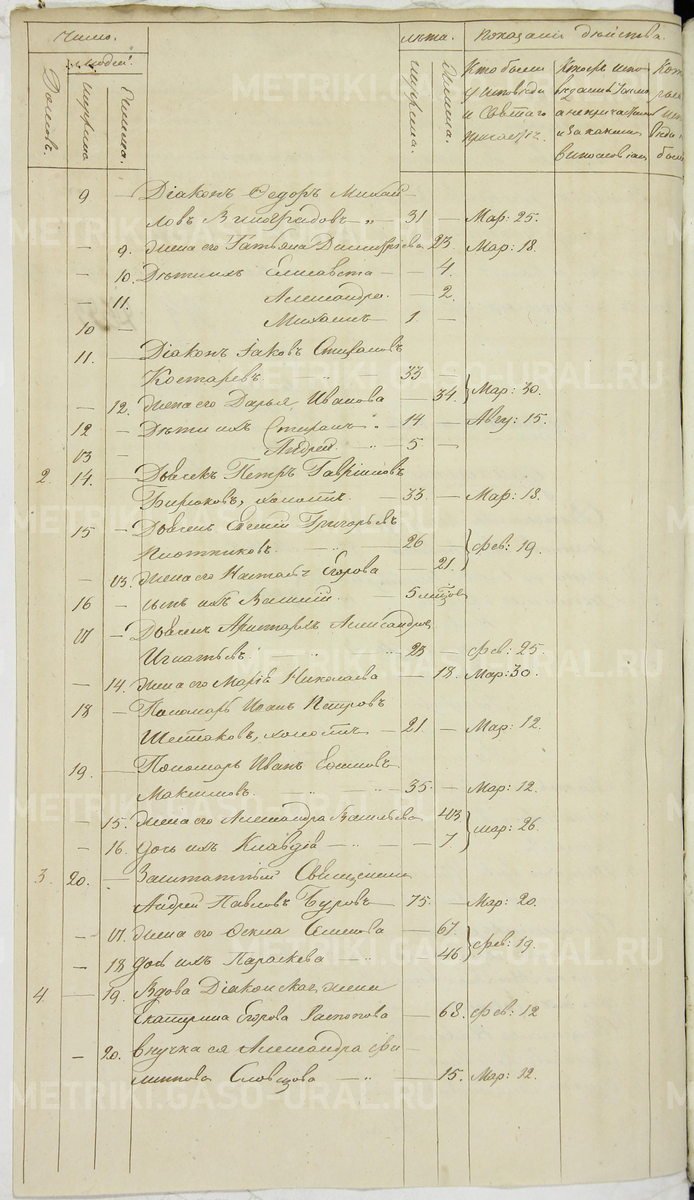 Число.
людей.
Домовъ.
мужеска
женска.
Лѣта.
мужеска.
женска.
Показаніе дѣйства.
Кто были у исповѣди и Святаго причастія.
Кто исповѣдались токмо а не причастились и за какимъ винословіемъ
9 — Діаконъ Ѳедоръ Михай-
ловъ Виноградовъ — „ — 31 — Мар: 25.
— 9. Жена его Татьяна Димитріева 23 Мар: 18.
— 10. Дѣти ихъ Елисавета — — 4.
— 11. Александра. — 2.
10 — Михаилъ — 1 —
11. — Діаконъ Іаковъ Стефановъ
Костаревъ — 33 —
— 12. Жена его Дарья Иванова — 34. Мар: 30.
12 — Дѣти ихъ Стефанъ „ — 14 — Авгу: 15.
13 — Андрей — 5 —
2. 14. — Дьячекъ Петръ Гавріиловъ
Бирюковъ, холостъ. — 33 — Мар: 18.
15 — Дьячекъ Евгеній Григорьевъ
Плотниковъ. — 26 — Фев: 19.
— 13. Жена его Наталья Егорова — 21.
16 — сынъ ихъ Василій. — 5 мѣсяцовъ
17 — Дьячекъ Александровъ
Игнатьевъ. — 23 — Фев: 25.
— 14. Жена его Марія Николаева — 18. Мар: 30.
18 — Пономарь Иванъ Петровъ
Шестаковъ, холостъ — 21 — Мар: 12.
19. — Пономарь Иванъ
Максимовъ. — 35 — Мар: 12.
— 15. Жена его Александра Васильева 43
— 16. дочь ихъ Клавдія — — 7 Мар: 26.
3. 20. — Заштатный Священникъ
Андрей Павловъ Буровъ — 75. — Мар: 20.
— 17. Жена его Ѳекла Семенова — 67.
— 18 дочь ихъ Параскева — 46 Фев: 19.
4 — 19. Вдова Діаконская жена
Екатерина Егорова Распопова — 68. Фев: 12
— 20. внучка ея Александра Фи-
липпова Словцова — „ — 15. Мар: 12.
METRIKI.GASO-URAL.RU